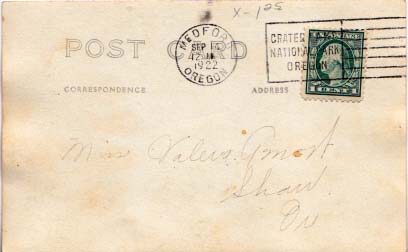 X-1.25
POST CARD
MEDFORD
SEP 14
12 M
1922
OREGON
CRATER LAKE
NATIONAL PARK
OREGON
1 CENT 1
CORRESPONDENCE
ADDRESS
Miss Valera
Shaw
Ore